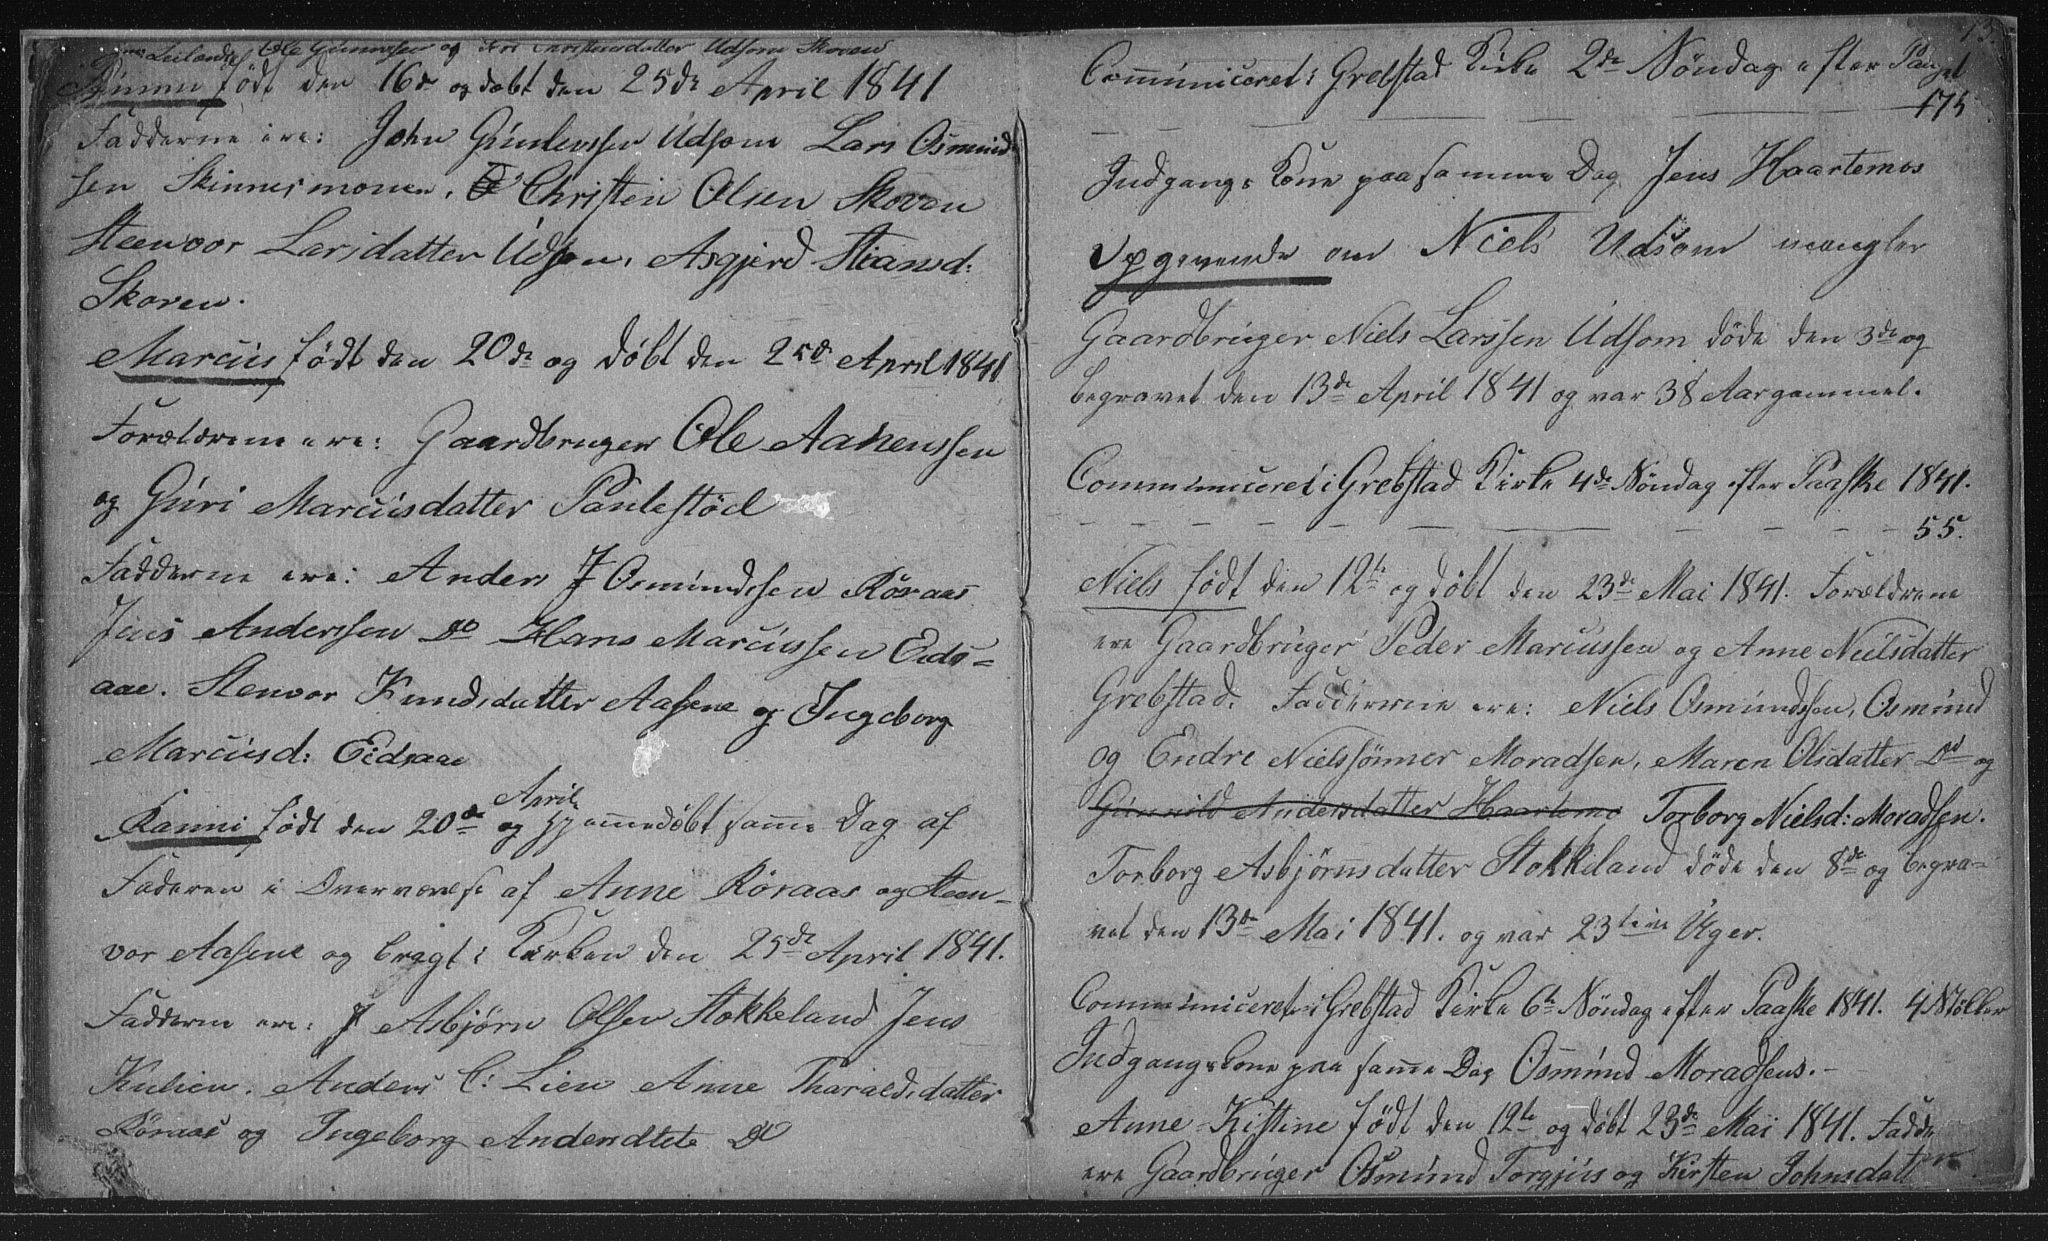 Leilænding Ole Gunnersen og Siri Christensdatter Udsom Skoven
Gunnen født den 16de og døbt den 25de April 1841
Fadderne ere: John Gunlevssen Udsom Lars Osmund-
sen Skinnesmonen, Christen Olsen Skoven
Steenvor Larsdatter Udsom, Asgjerd Steansd:
Skoven.
Marcus født den 20de og døbt den 25de April 1841
Forældrene ere: Gaardbruger Ole Aanenssen
og Guri Marcusdatter Paulestöel
Fadderne ere: Anders Osmundssen Röraas
Jens Anderssen Do Hans Marcussen Eids=
aae. Stenvor Knudsdatter Aasene og Ingeborg
Marcusd: Eidsaae
April
Ranni født den 20de og hjemmedøbt samme Dag af
Faderen i Overværelse af Anne Röraas og Steen-
vor Aasene og bragt i Kirken den 25de April 1841.
Fadderne ere: Asbjörn Olsen Stokkeland Jens
Kulien. Anders C: Lien Anne Tharaldsdatter
Röraas og Ingeborg Andersdtete Do
13.
Communiceret i Grebstad Kirke 2de Søndag efter Paaske
175
Indgangs Kone paa samme Dag Jens Haartemos
Opgivende om Niels Udsom mangler
Gaardbruger Niels Larssen Udsom døde den 3de og
begravet den 13de April 1841 og var 38 Aar gammel.
Communiceret i Grebstad Kirke 4de Søndag efter Paaske 1841.
55.
Niels født den 12te og døbt den 23de Mai 1841. Forældrene
ere Gaardbruger Peder Marcussen og Anne Neilsdatter
Grebstad. Fadderne ere: Niels Osmundssen, Osmund
og Endre Nielssönner Moradsen, Maren Olsdatter Do og
Gunnild Andersdatter Haartemo Torborg Nielsd: Moradsen.
Torborg Asbjörnsdatter Stokkeland døde den 8de og begra-
vet den 13de Mai 1841. og var 23 tive Uger.
Communiceret i Grebstad Kirke 6te Søndag efter Paaske 1841. 4 Stkker
Indgangskone paa samme Dag Osmund Moradsens.-
Anne Kistine født den 12te og døbt 23de Mai 1841. Fadde
ere Gaardbruger Osmund Torgjus og Kirsten Johnsdatt